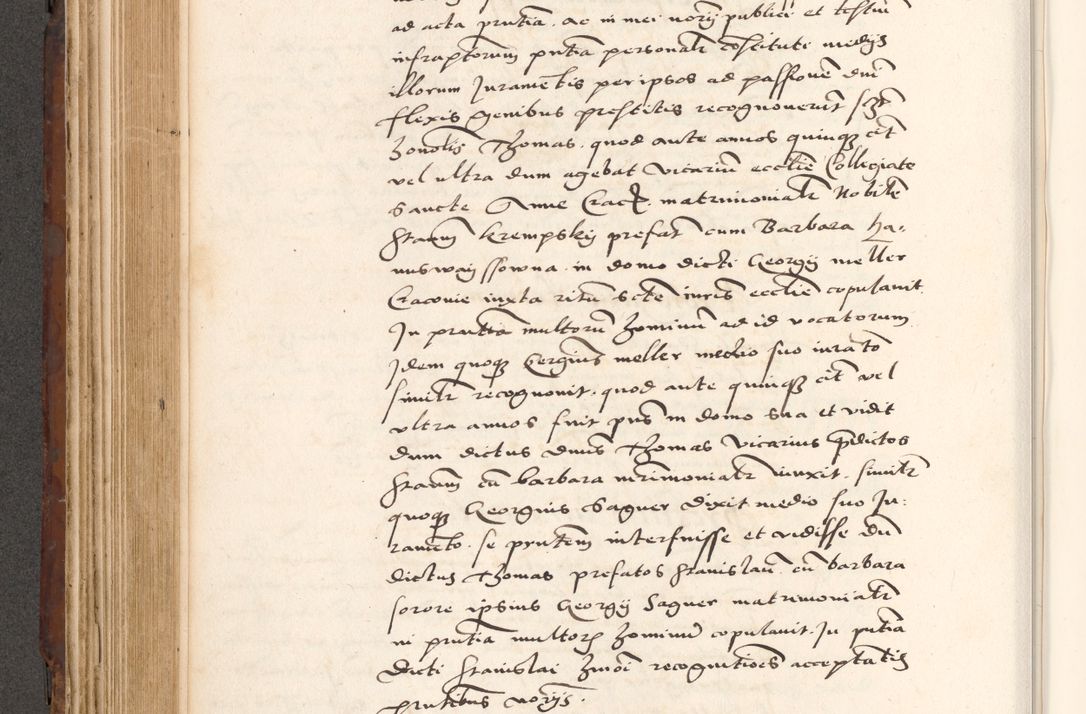 ad acta pñtia. ac in mei noẽij publici et testiũ
infraptorum pñtia personalr cõstitute medijs
illorum Juramẽtis per ipsos ad passionẽ dñi
flexis genibus prestitis recognouerũt sczt
honolis Thomas. quod ante annos quinqz cit
vel ultra dum agebat vicariũ ecclie Collegiate
Sancte Anne Crac. matrimonialr Nobilẽ
Stanis Krempskij prefat cum Barbara Ha:
nuswaij ssowna. in domo dicti Georgij meller
Cracouie iuxta ritũ scte iuris ecclie copulauit
In pñtia multorũ hominũ ad id vocatorum
Idem quoqz Gergius meller medio suo iurãto
similr recognouit. quod ante quinqz cit vel
ultra annos fuit pñs in domo sua et vidit
dum dictus dñus Thomas vicarius p̃dictos
Stanis cũ barbara mrimonialr iunxit. similr
quoqz Georgius Sagner dixit medio suo Ju:
ramẽto. se pñtem interfuisse et vidisse dũ
dictus Thomas prefatos Stanislaũ. cũ barbara
sorore ipsius Georgij Sagner matrimonialr
in pñtia multorz hominũ copulauit. In pñtia
dicti Stanislai hmõi recognitiões acceptatis
pñtibus